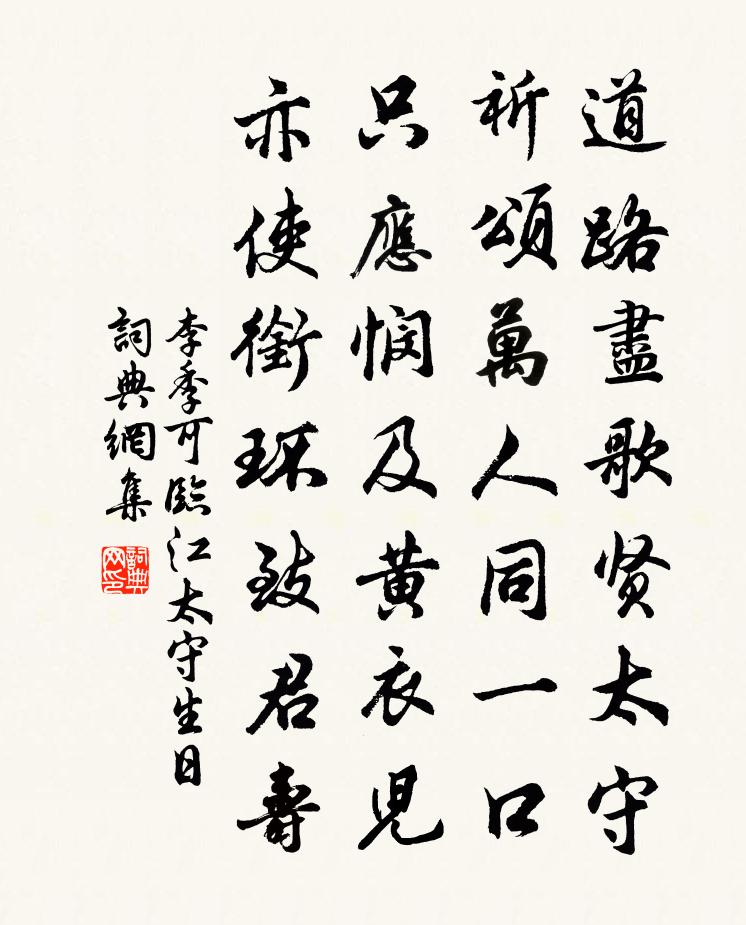 道路盡歌贤太守
祈頌萬人同一口
只應憫及黄衣兒
亦使銜環致君壽
李季可臨江太守生日
詞典網集
詞典网印